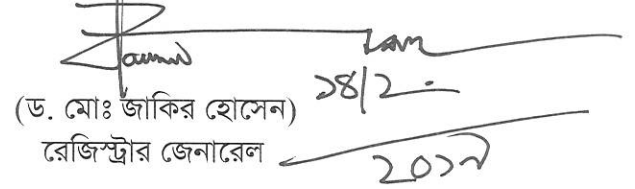 ১৪/২
(ড. মোঃ জাকির হোসেন)
রেজিস্ট্রার জেনারেল
২০১৭